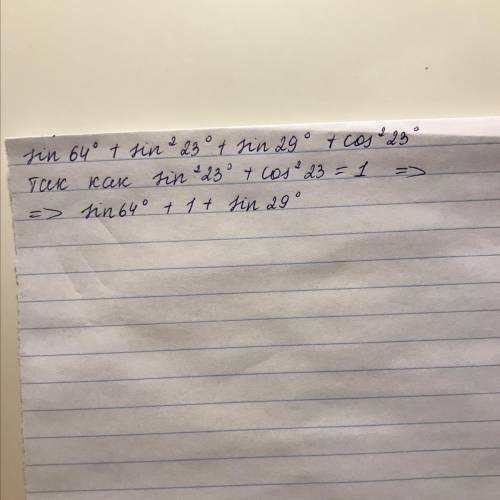 sin 64° + sin² 23° + sin 29° + cos² 23°
так как sin² 23° + cos² 23 = 1 =>
=> sin 64° + 1 + sin 29°